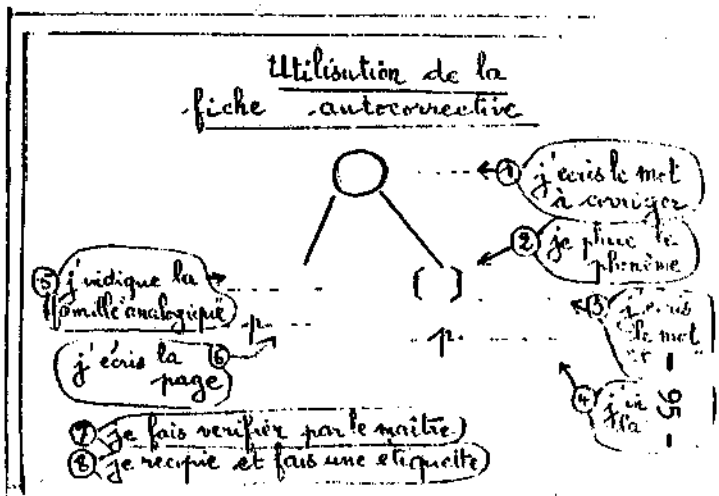 Utilisation de la
fiche autocorrective
① j'écris le mot
à corriger
② je place le
phonème
[ ]
③ j'écris
le mot
④ j'in
la
⑤ j'indique la
famille analogique
p.
p.
⑥ j'écris la
page
- 95 -
⑦ je fais verifier par le maître
⑧ je recopie et fais une etiquette